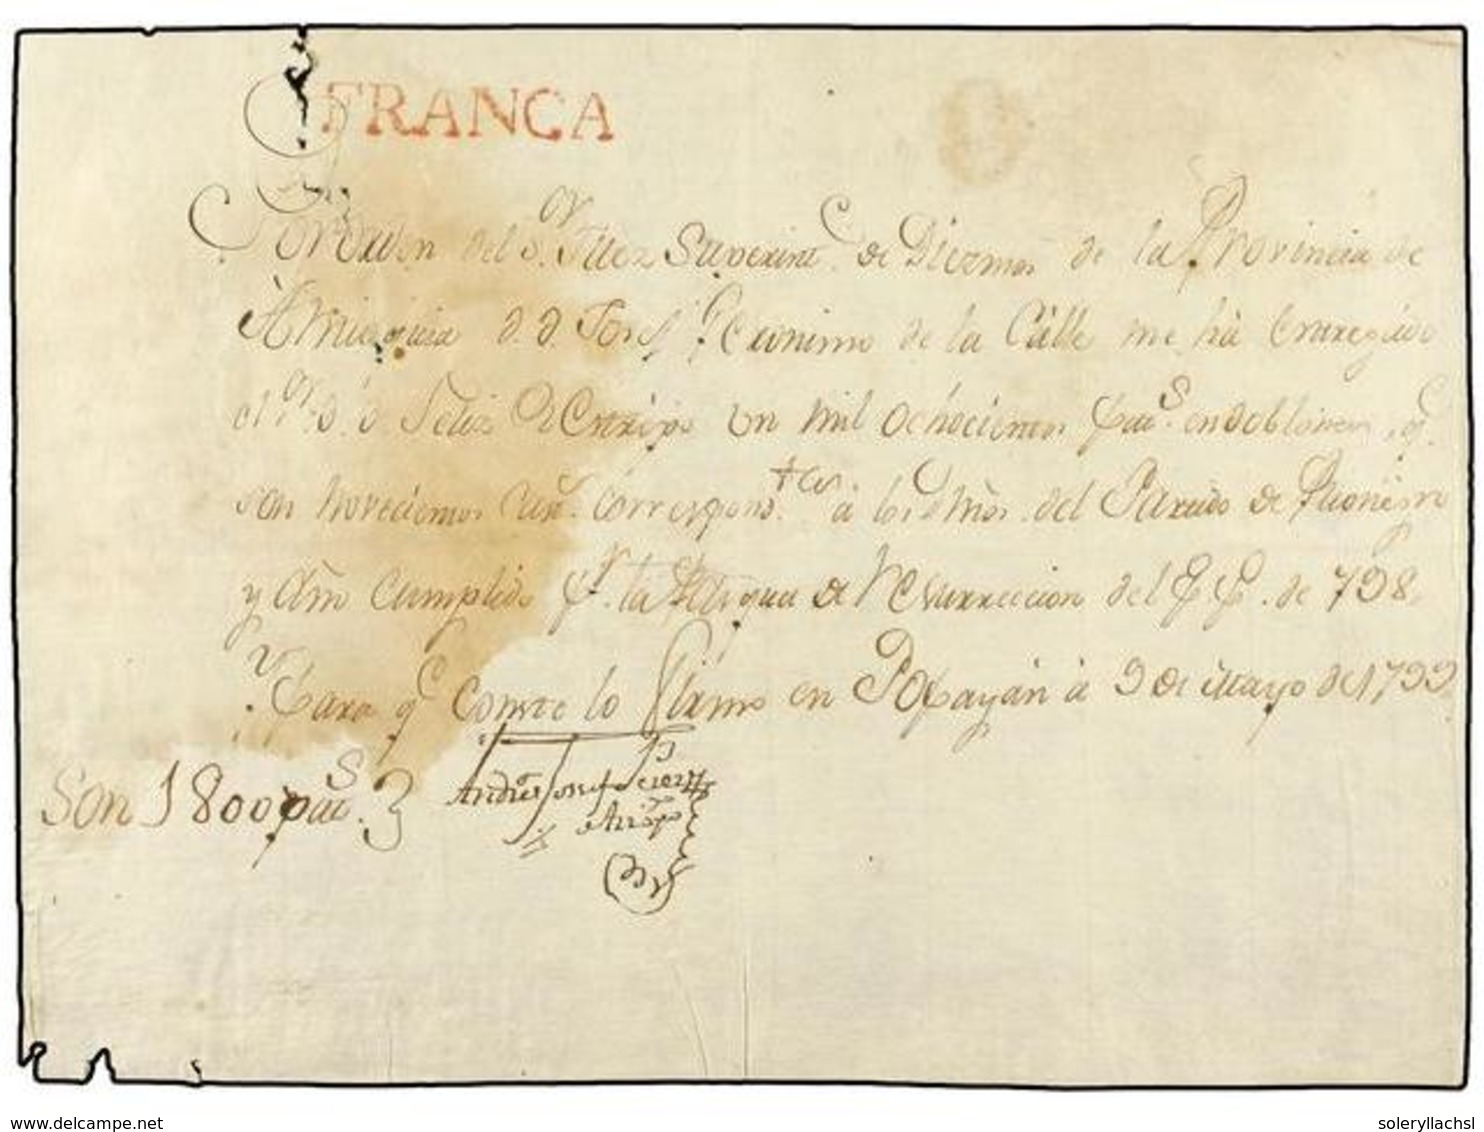 FRANCA
Por orden del Sr. Juez Superinte. de Diezmos de la Provincia de
Antioquia D. D. Josef Geronimo de la Calle me ha entregado
el Sr. D. D. Felix Restrepo un mil ochocientos pats. en doblones, q.
son novecientos correspondtes. à los dnos. del Partido de Rionegro
y año cumplido pr. la Pasqua de Resurreccion del de 798.
Para qe Conste lo Firmo en Popayán à 9 de Mayo de 1799
Son 1800 pats.
Andres Josef
delcampe.net
soleryllachsl